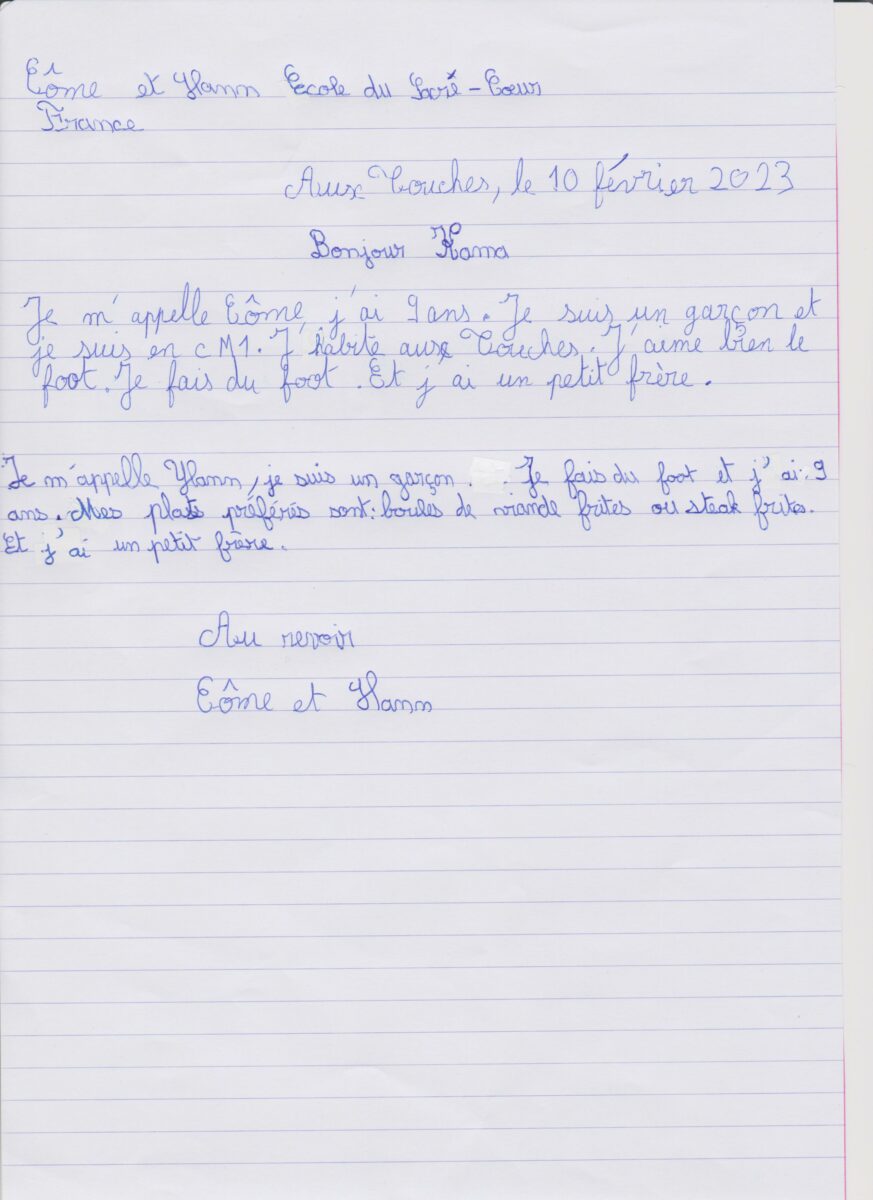 Eôme et Yann Ecole du Sacré-Coeur
France
Aux Touches, le 10 février 2023
Bonjour Kama
Je m'appelle Eôme, j'ai 9 ans. Je suis un garçon et
je suis en CM1. J'habite aux Touches. J'aime bien le
foot. Je fais du foot. Et j'ai un petit frère.
Je m'appelle Yann, je suis un garçon. . Je fais du foot et j'ai 9
ans. Mes plats préférés sont: boules de viande frites ou steak frites.
Et j'ai un petit frère.
Au revoir
Eôme et Yann